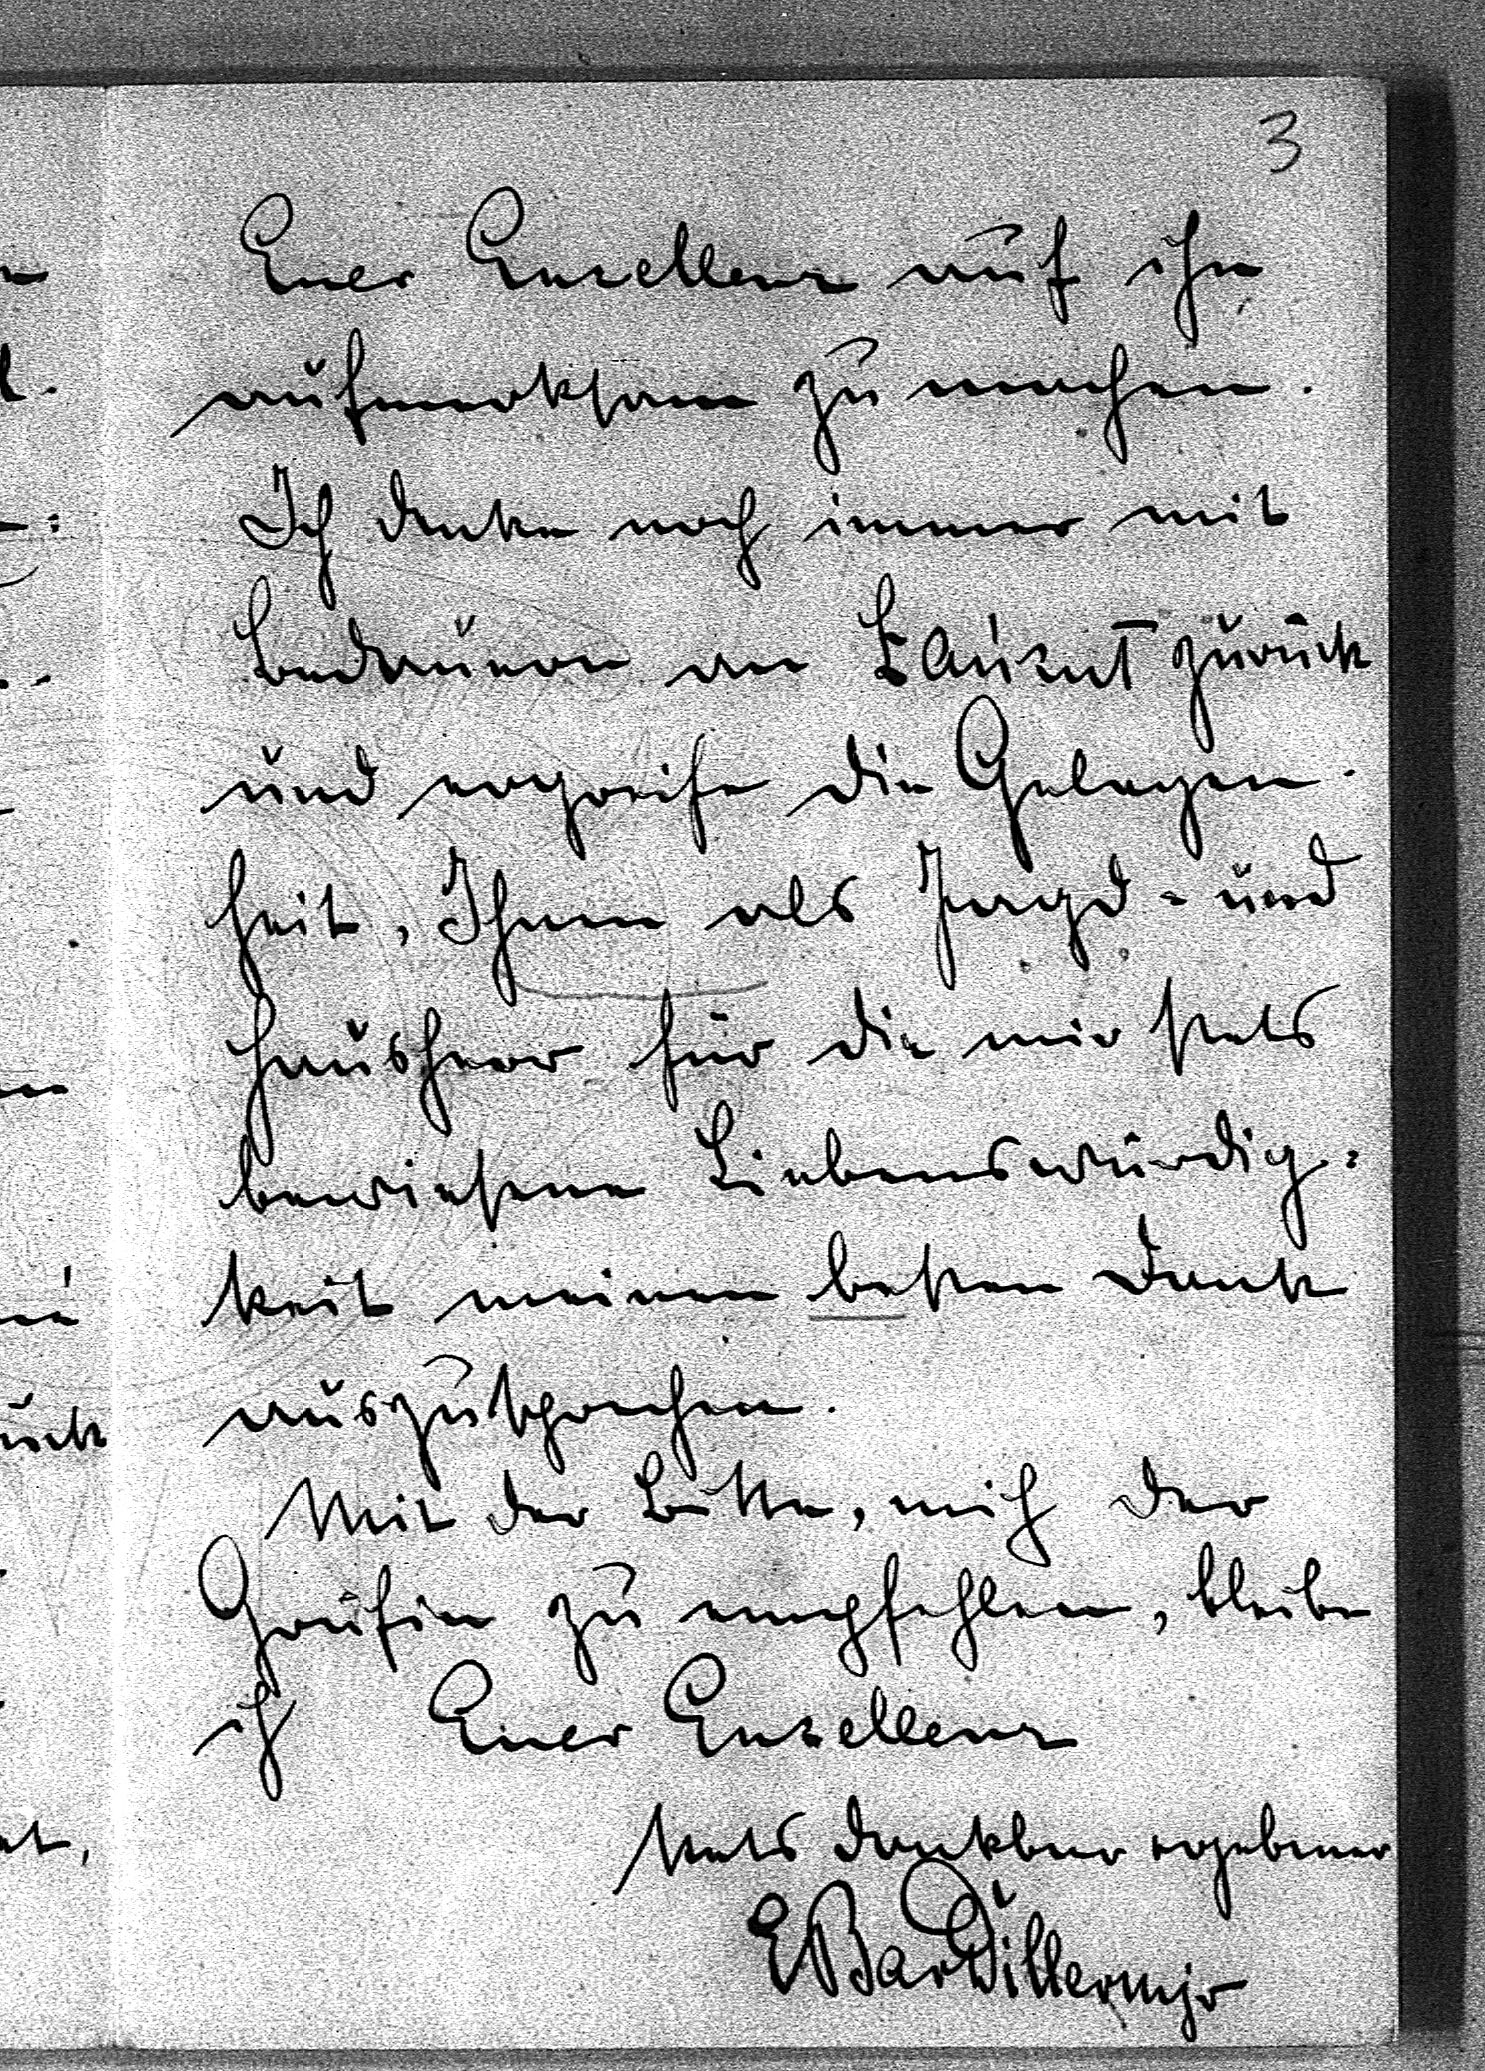 3
Euer Exzellenz auf ihn
aufmerksam zu machen.
Ich denke noch immer mit
Bedauern an zurück
und ergreife die Gelegen-
heit, Ihnen als Jagd- und
Hausherr für die mir stets
bewiesene Liebenswürdig-
keit meinen besten Dank
auszusprechen.
Mit der Bitte, mich der
Gräfin zu empfehlen, bleibe
ich Euer Exzellenz
stets dankbar ergebener